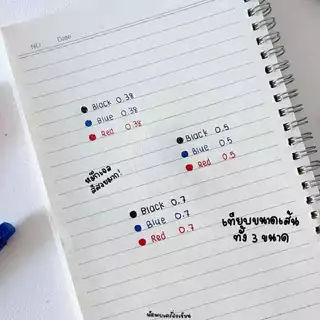 NO.
Date
Black 0.38
Blue 0.38
Red 0.38
หมึกเจล
สีสวยมาก!
Black 0.5
Blue 0.5
Red 0.5
Black 0.7
Blue 0.7
Red 0.7
เทียบขนาดเส้น
ทั้ง 3 ขนาด